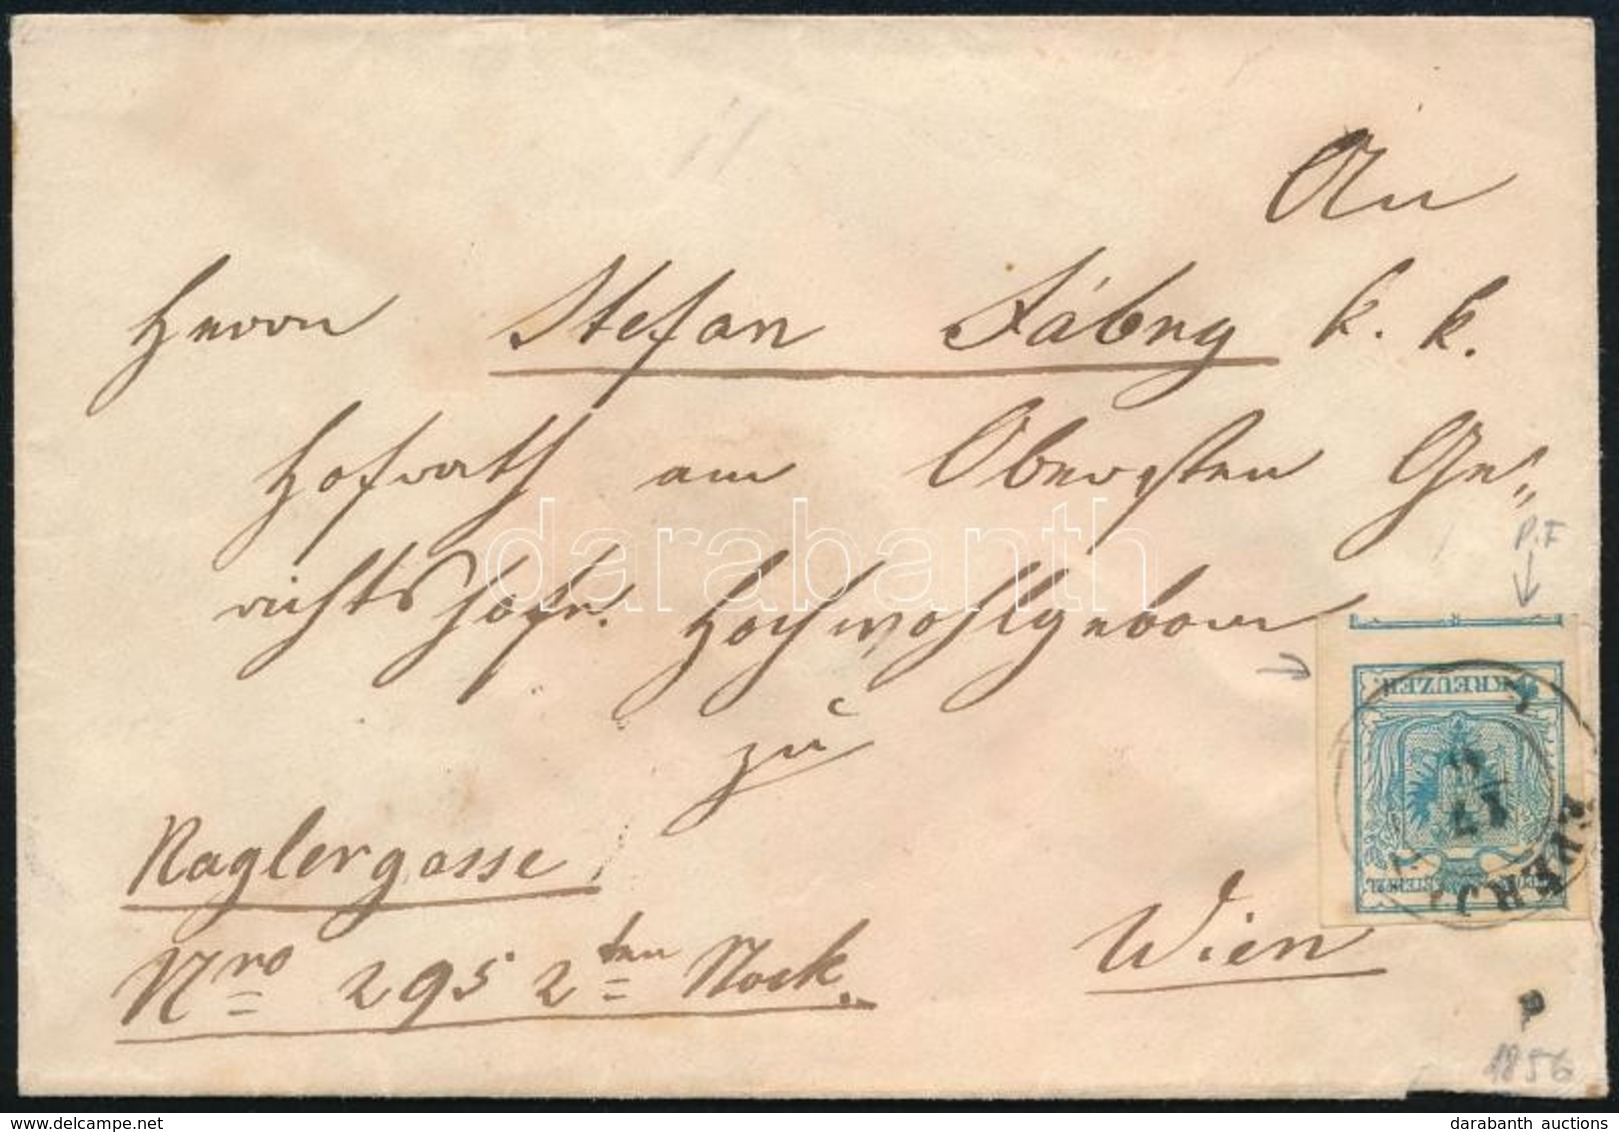 An
Herrn Stefan Fábry k. k.
Hofrath am Obersten Ge„
richtshofe. Hochwohlgeborn
zu
Naglergasse
Nro 295 2ten Stock.
Wien
P.F
KREUZER.
1856
darabanth
www.delcampe.net
darabanth auctions